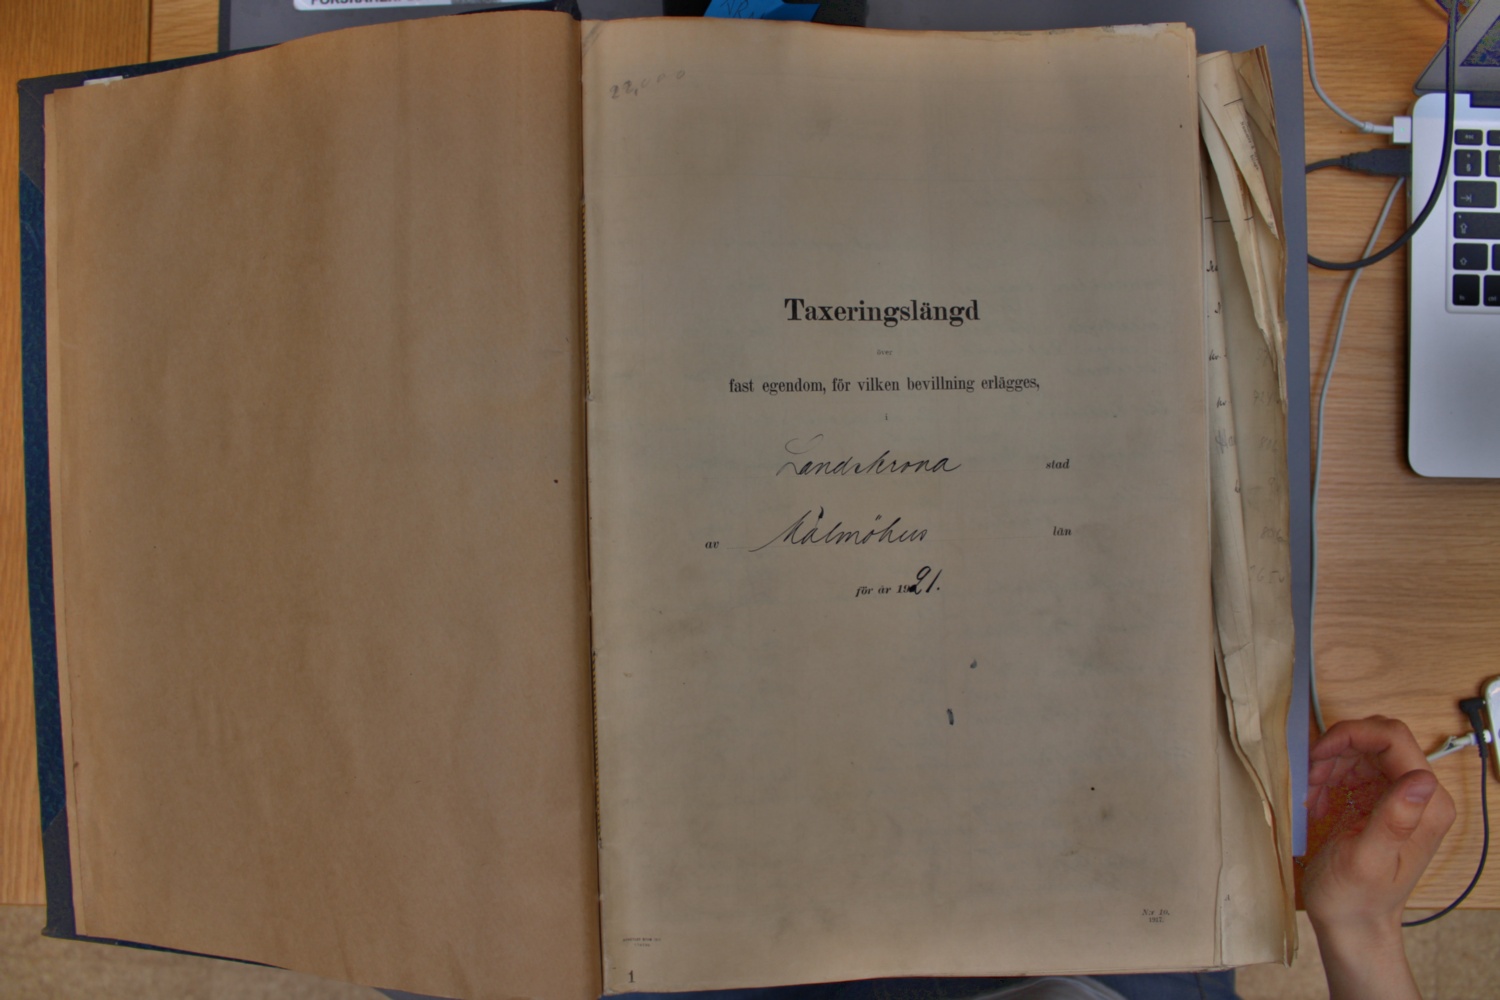 22,000
Taxeringslängd
över
fast egendom, för vilken bevillning erlägges,
i
Landskrona stad
av Malmöhus län
för år 1921.
N:r 10.
1917.
1